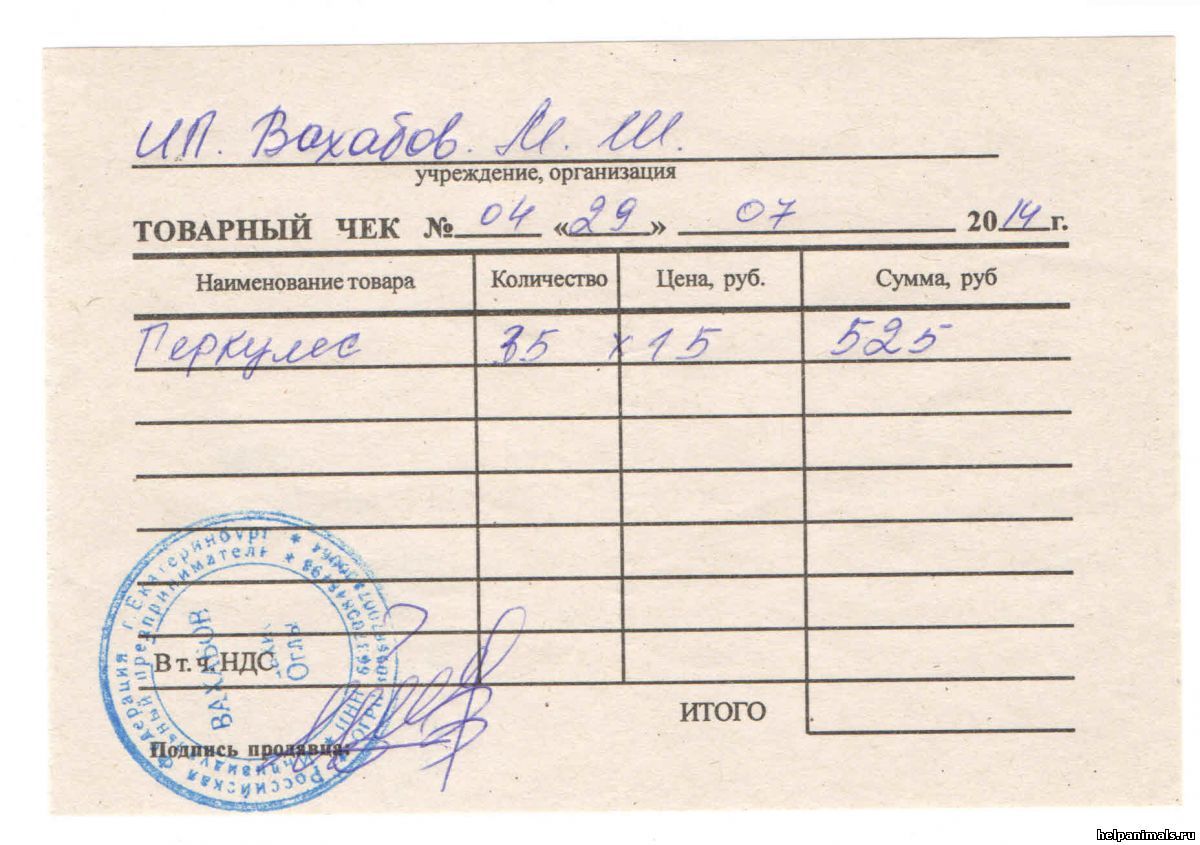 ИП. Вахабов. М. Ш.
учреждение, организация
ТОВАРНЫЙ ЧЕК № 04 «29» 07 2014 г.
Наименование товара Количество Цена, руб. Сумма, руб
Геркулес 35 х 15 525
В т. ч. НДС
ИТОГО
Подпись продавца:
Российская Федерация г. Екатеринбург
Индивидуальный предприниматель
ВАХАБОВ
Оглы
ИНН
ОГРН
helpanimals.ru